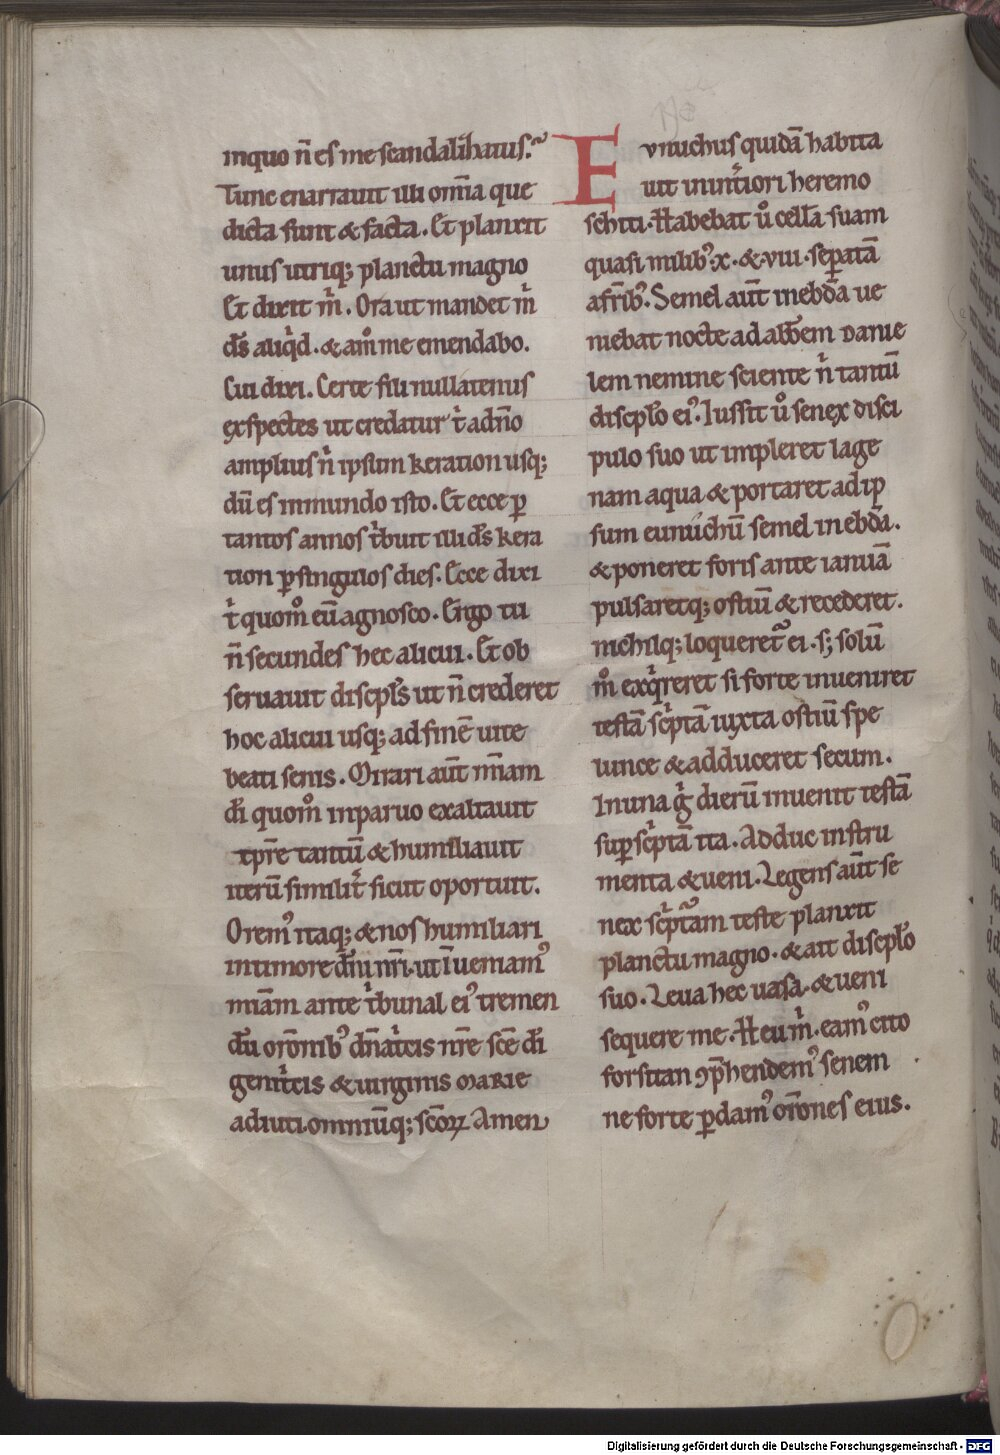 inquo n̄ es me scandaliȥatus.
Tunc enarrauit illi om̄ia que
dicta sunt & facta. Et planxit
unus utriq; planctu magno
Et dixit m̄. Ora ut mandet m̄
ds̄ aliqd̓. & am̊ me emendabo.
Cui dixi. Certe fili nullatenus
exspectes ut credatur t̓ adn̄o
amplius n̄ ipsum keration usq;
dū es inmundo isto. Et ecce ꝑ
tantos annos t̓buit illi ds̄ kera
tion ꝑsingulos dies. Ecce dixi
t̓ quom̊ eū agnosco. Ergo tu
n̄ secundes hec alicui. Et ob
seruauit discipl̓s ut n̄ crederet
hoc alicui usq; ad finē uite
beati senis. Mirari aūt m̄iam
dī quom̊ inparuo exaltauit
tp̄re tantū & humiliauit
iterū similit̓ sicut oportuit.
Orem᾿ itaq; & nos humiliari
intimore dn̄i nr̄i. ut īueniam᾿
miām ante t̓bunal ei᾿ tremen
dū or̄onib᾿ dn̄at̓cis nr̄e sc̄e dī
genit̓cis & uirginis marie
adiuti. omniūq; sc̄oꝝ Amen
Evnuchus quidā habita
uit inint̓iori heremo
schiti. Habebat ů cellā suam
quasi milib᾿ .x. & .viii. seꝑatā
afr̄ib᾿. Semel aūt inebd̄a ue
niebat nocte ad abb̄em danie
lem nemine sciente n̓ tantū
discipl̓o ei᾿. Iussit ů senex disci
pulo suo ut impleret lage
nam aqua & portaret ad ip
sum eunuchū semel in ebd̄a.
& poneret foris ante ianuā
pulsaretq; ostiū & recederet.
nichilq; loqueret᾿ ei. s; solū
m̊ exq̓reret si forte inueniret
testā sc̓ptā iuxta ostiū spe
lunce & adduceret secum.
Inuna g̓ dierū inuenit testā
suꝑsc̓ptā ita. Adduc instru
menta & ueni. Legens aūt se
nex sc̓pt᾿am teste planxit
planctu magno. & ait discipl̓o
suo. Leua hec uasa. & ueni
sequere me. Heu m̓. eam᾿ cito
forsitan ꝯp̄hendem᾿ senem
ne forte ꝑdam᾿ or̄ones eius.
Digitalisierung gefördert durch die Deutsche Forschungsgemeinschaft - DFG